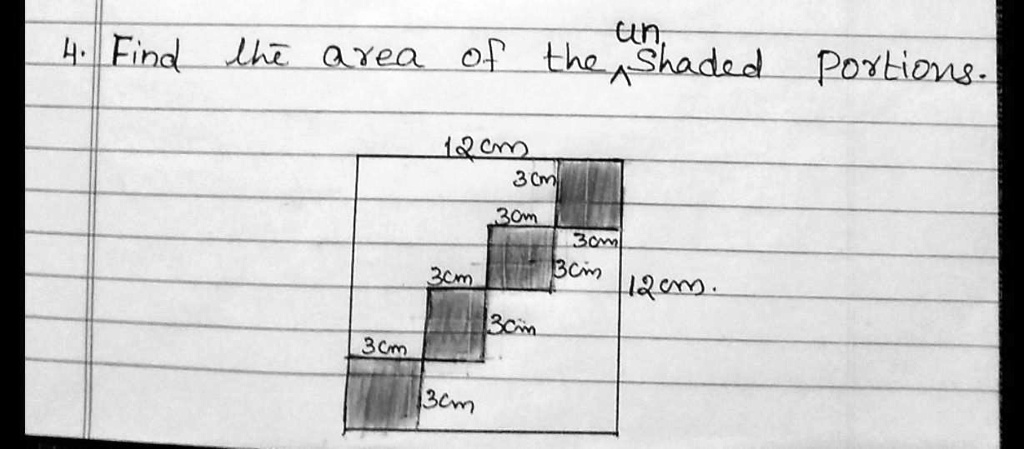 4. Find the area of the unshaded Portions.
12cm
3cm
3cm
3cm
3cm
3cm
12cm.
3cm
3cm
3cm